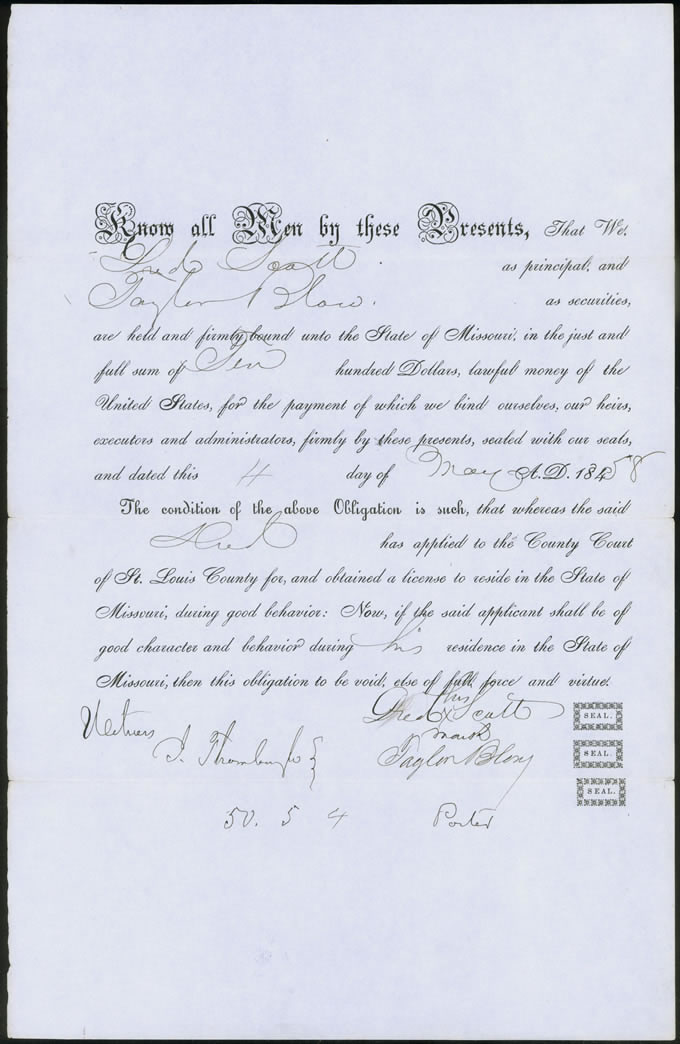 Know all Men by these Presents, That We,
Dred Scott . as principal, and
Taylor Blow . as securities,
are held and firmly bound unto the State of Missouri, in the just and
full sum of Ten hundred Dollars, lawful money of the
United States, for the payment of which we bind ourselves, our heirs,
executors and administrators, firmly by these presents, sealed with our seals,
and dated this 4 day of May A.D. 18458
The condition of the above Obligation is such, that whereas the said
Dred has applied to the County Court
of St. Louis County for, and obtained a license to reside in the State of
Missouri, during good behavior: Now, if the said applicant shall be of
good character and behavior during his residence in the State of
Missouri, then this obligation to be void, else of full force and virtue.
his
Dred X Scott SEAL.
mark
Witness
Taylor Blow SEAL.
SEAL.
50. 5 4 Porter